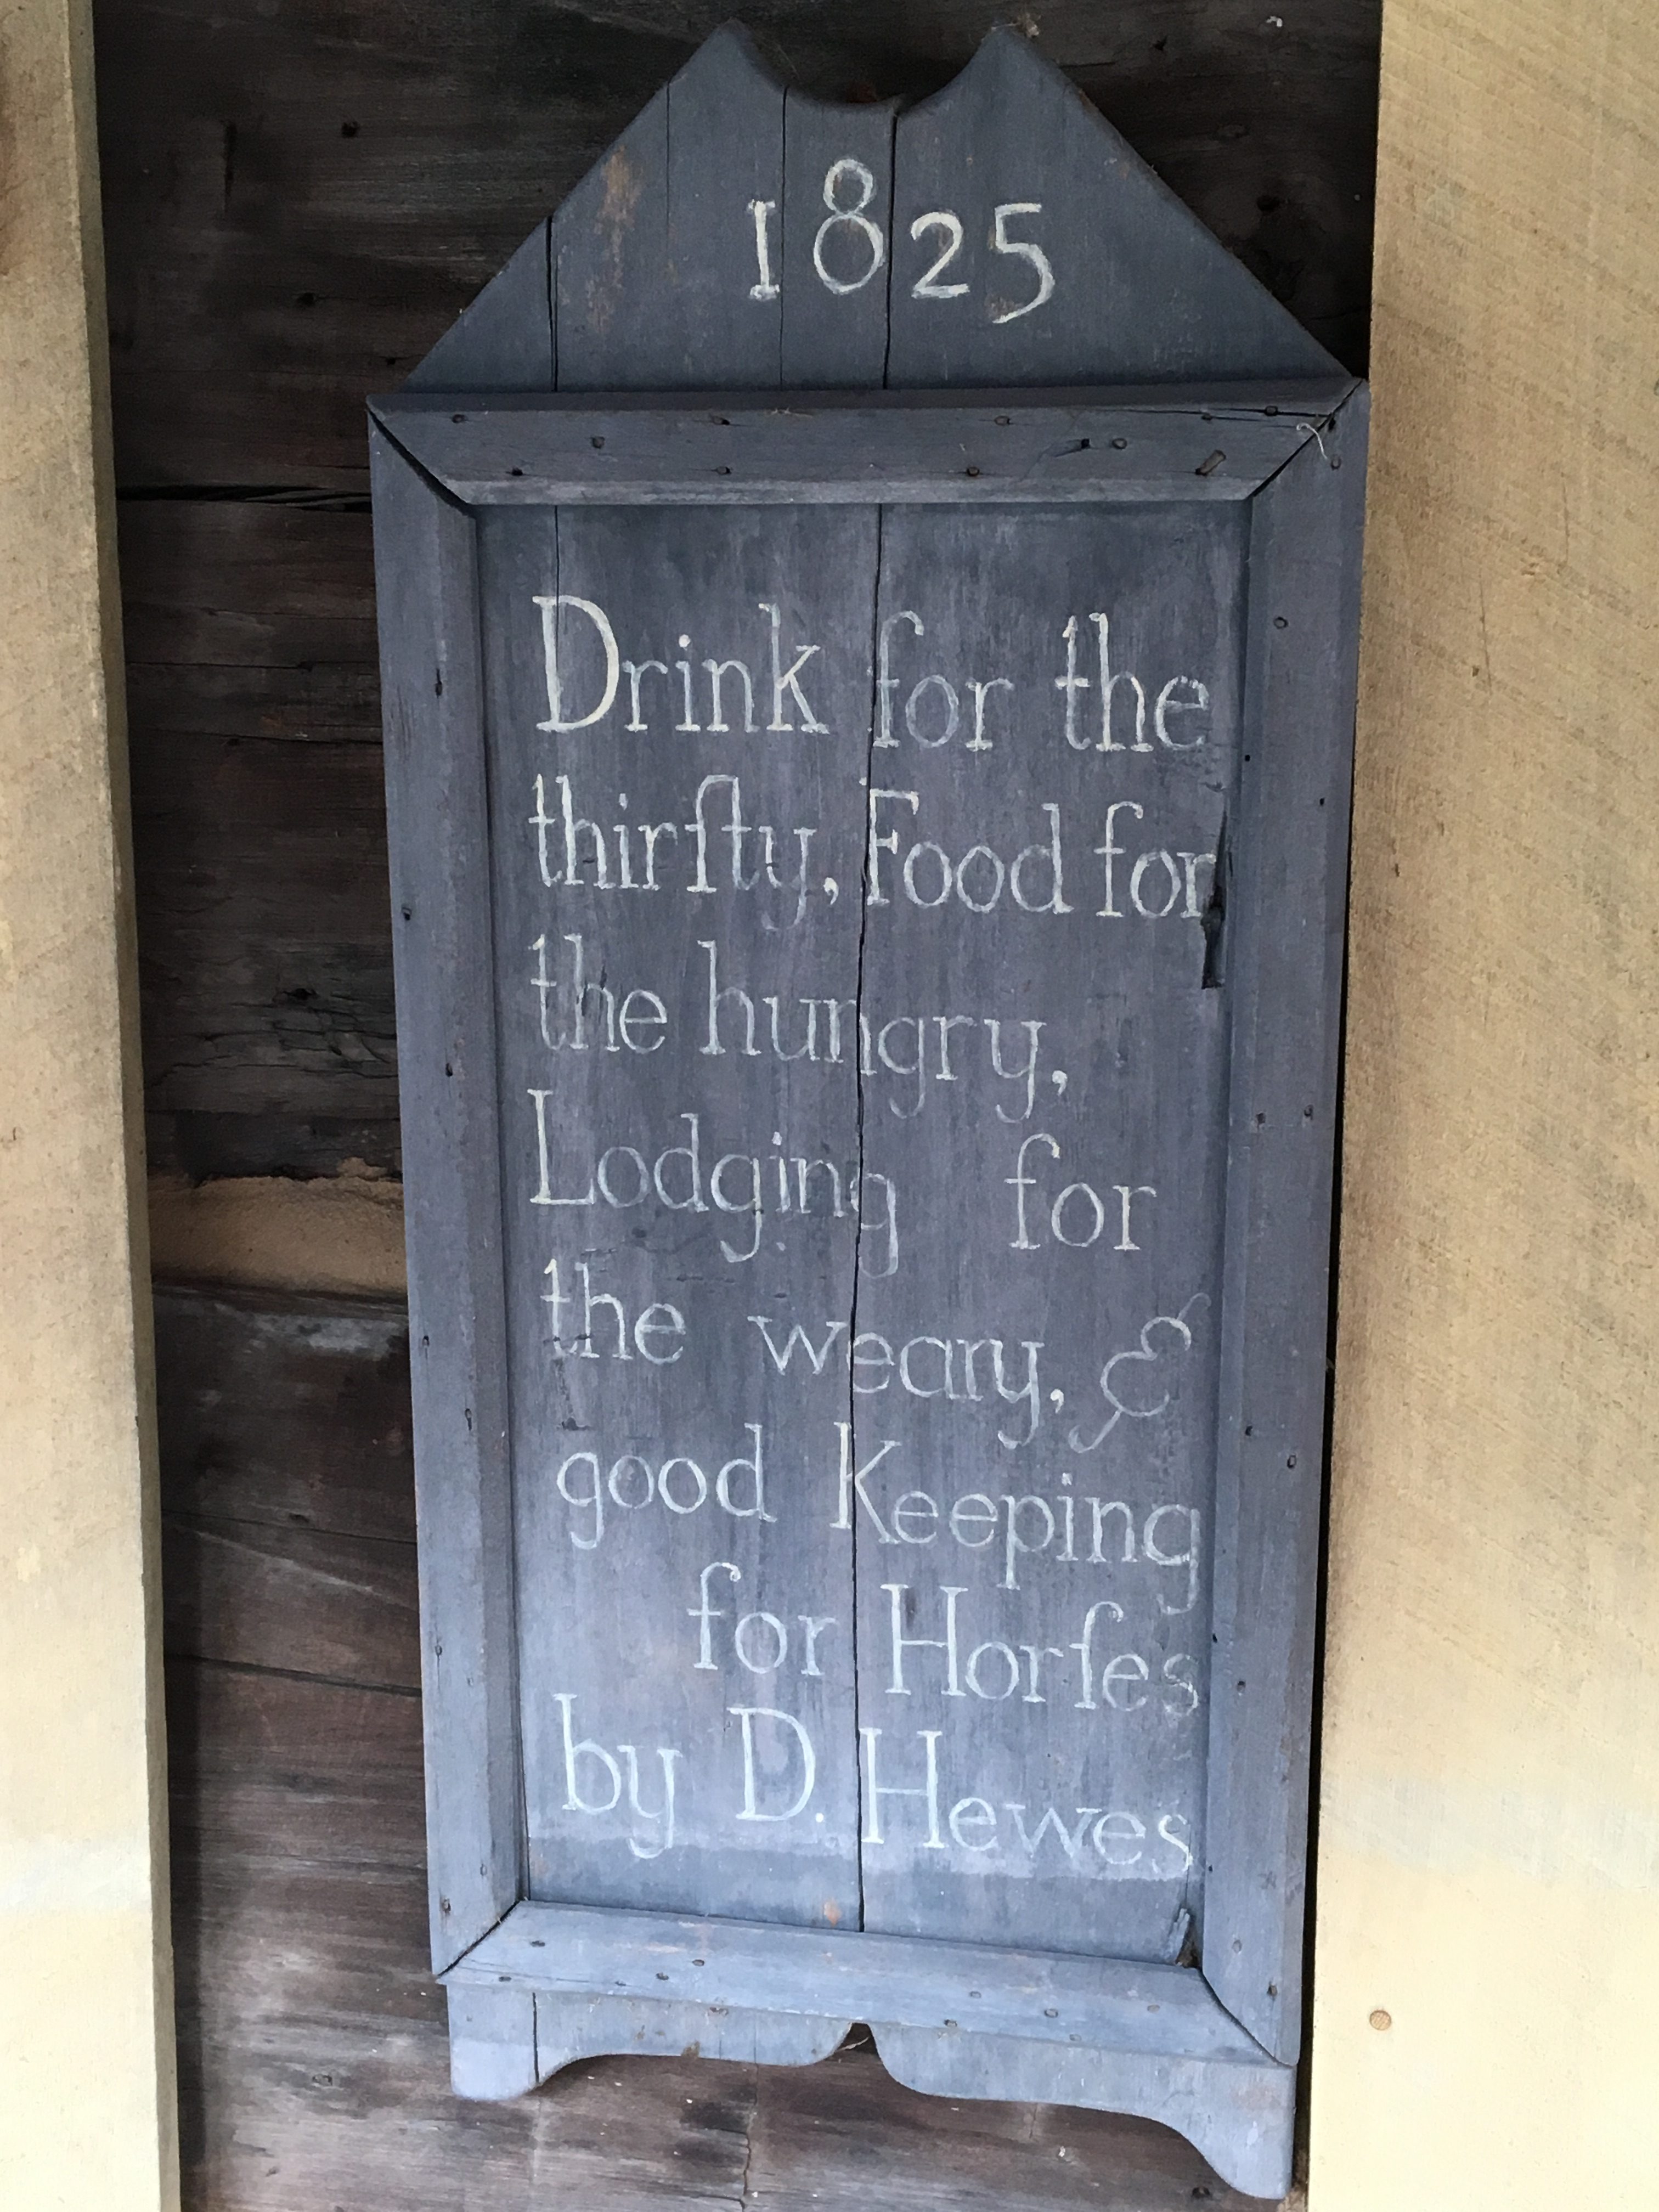 1825
Drink for the
thirſty, Food for
the hungry,
Lodging for
the weary, &
good Keeping
for Horſes
by D. Hewes